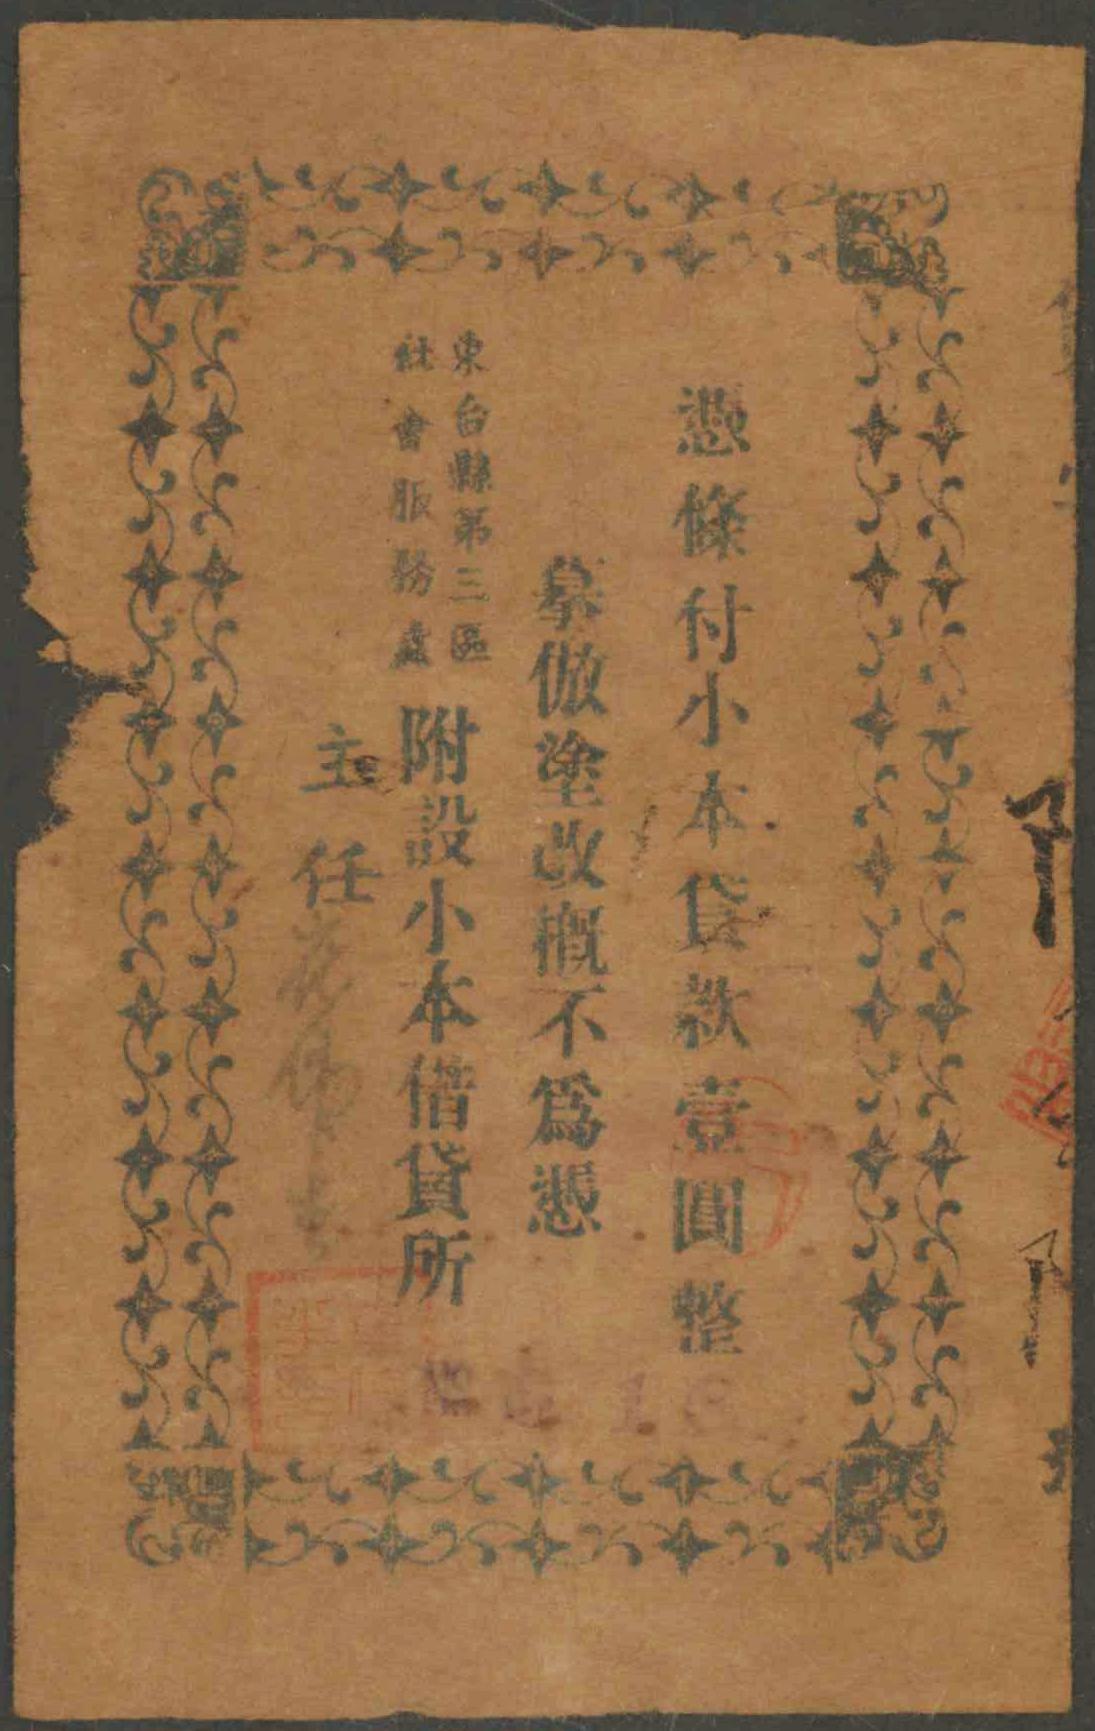 憑條付小本貸款壹圓整
摹倣塗改概不為憑
東台縣第三區
社會服務處
附設小本借貸所
主任